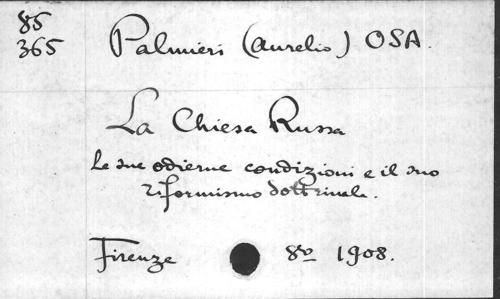 85
365
Palmieri (Aurelio) OSA.
La Chiesa Russa
Le sue odierne condizioni e il suo
riformismo dottrinale.
Firenze 8vo 1908.